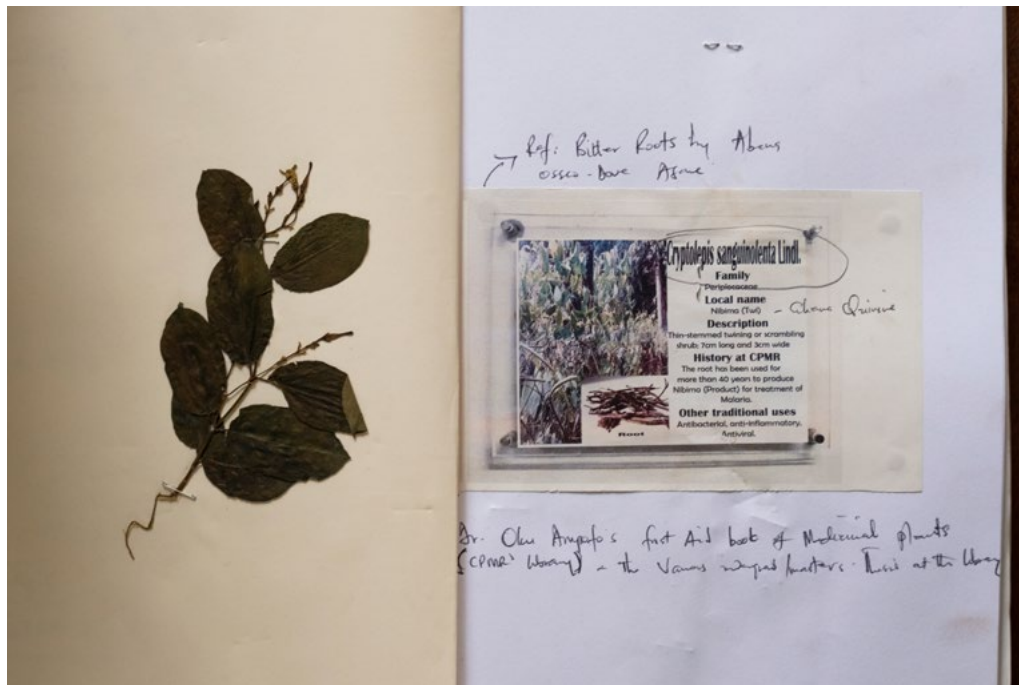 Ref: Bitter Roots by Abena
Osseo-Dare Asare
Cryptolepis sanguinolenta Lindl.
Family
Periplocaceae
Local name
Nibima (Twi) - Ghana Quinine
Description
Thin-stemmed twining or scrambling
shrub; 7cm long and 3cm wide
History at CPMR
The root has been used for
more than 40 years to produce
Nibima (Product) for treatment of
Malaria.
Other traditional uses
Antibacterial, anti-inflammatory,
Antiviral.
Root
Dr. Oku Ampofo's first Aid book of Medicinal plants
(CPMR library) the Various masters. Thesis at the library